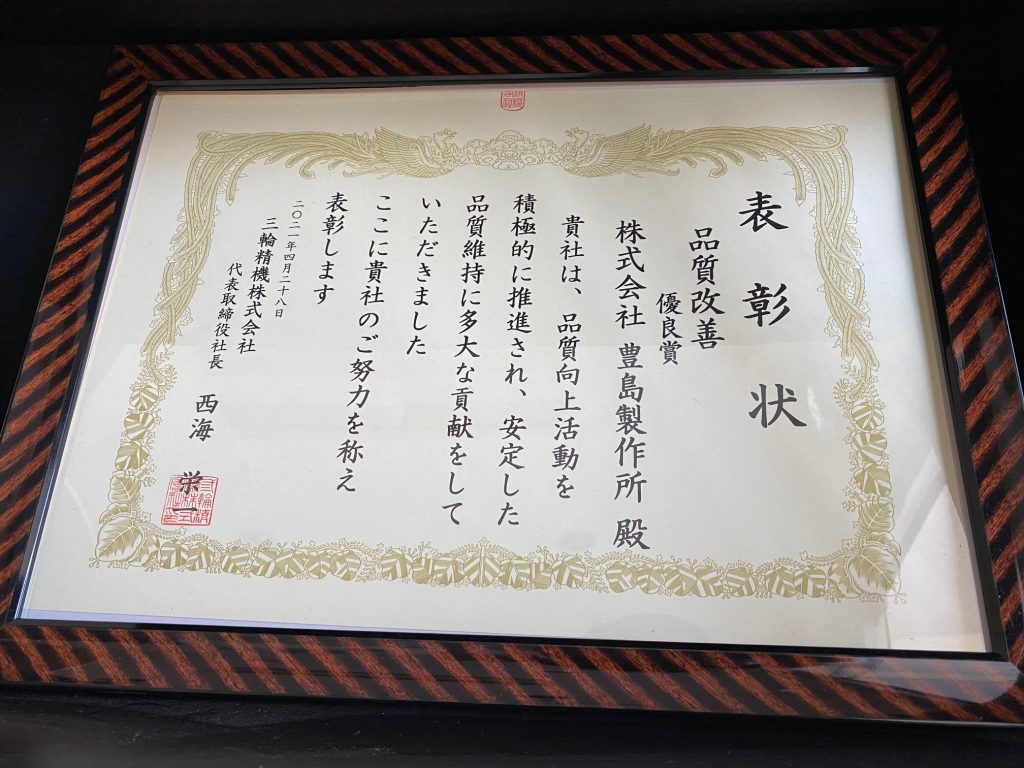 表彰状
品質改善
優良賞
株式会社 豊島製作所 殿
貴社は、品質向上活動を
積極的に推進され、安定した
品質維持に多大な貢献をして
いただきました
ここに貴社のご努力を称え
表彰します
二〇二一年四月二十八日
三輪精機株式会社
代表取締役社長 西海 栄一